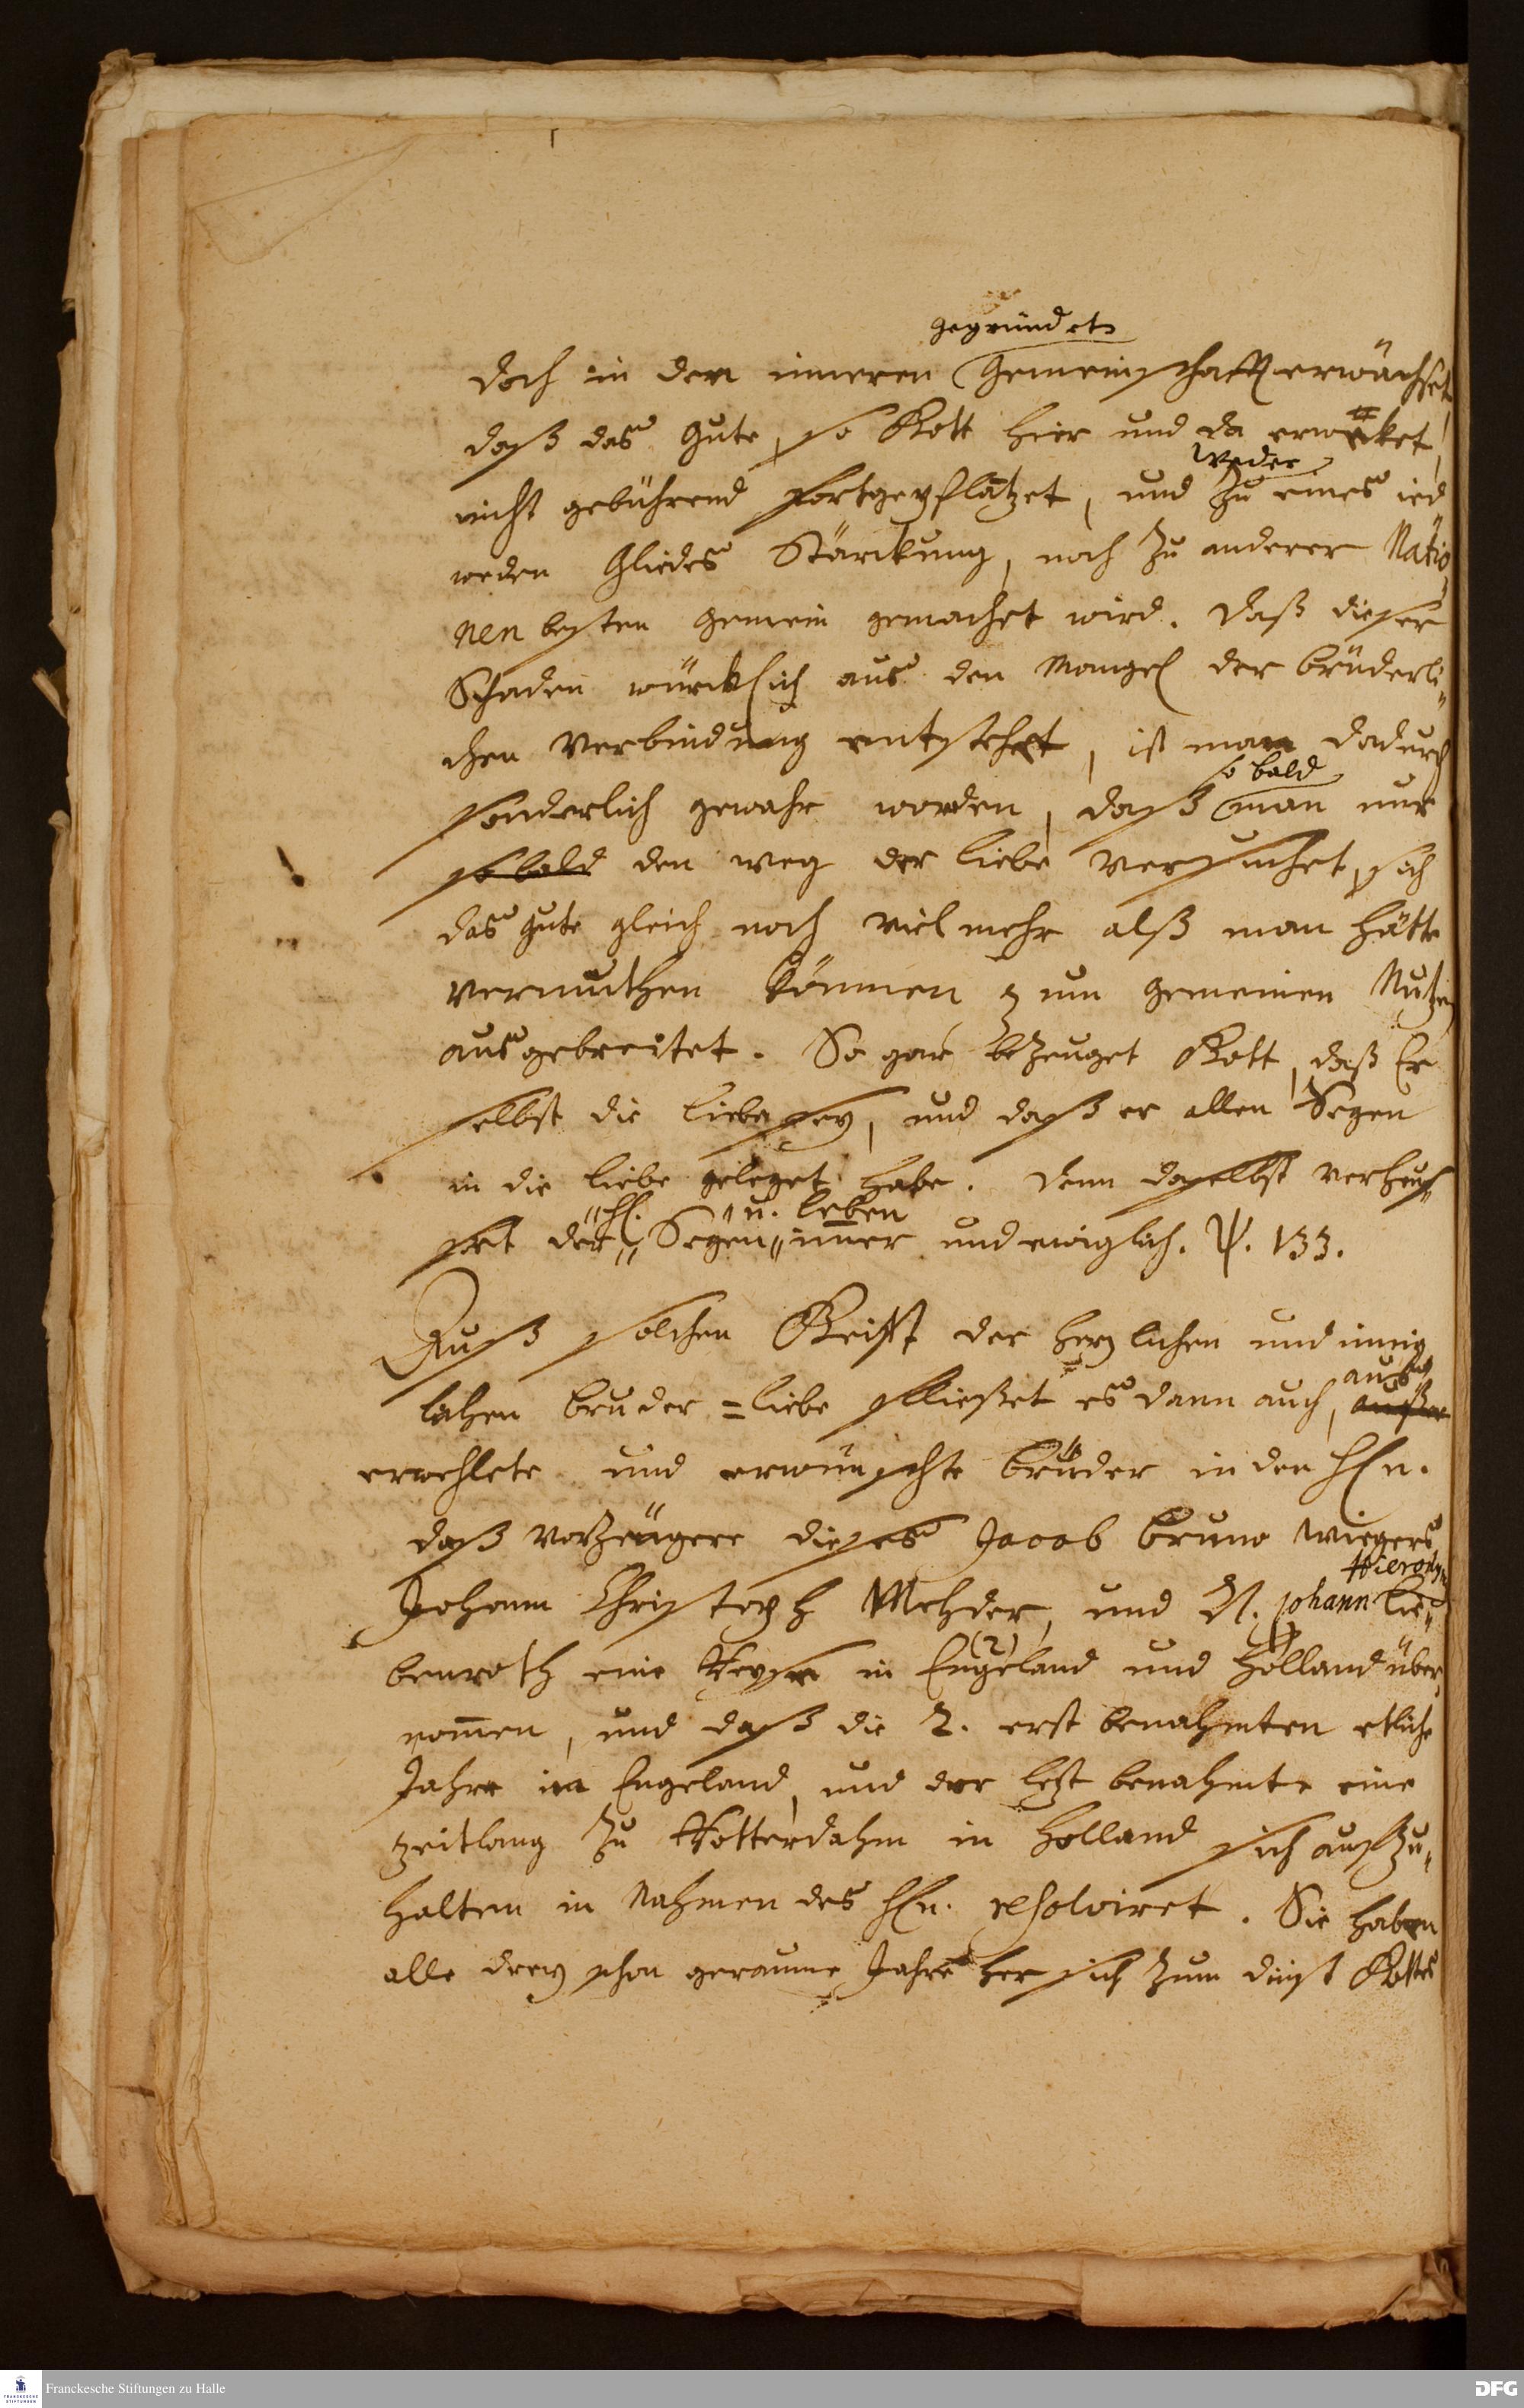 gegründete
doch in der inneren Gemeinschafft erwächset
daß das Gute, so Gott hier und da erwecket,
weder
nicht gebührend fortgepflantzet, und zu eines ied
weden Gliedes Stärckung, noch zu anderer Natio
nen besten gemein gemachet wird. Daß dieser
Schaden würcklich aus den Mangel der brüderli„
chen Verbindung entstehet, ist man dadurch
so bald
sonderlich gewahr worden, daß man nur
so bald den weg der liebe versuchet, sich
das gute gleich noch viel mehr alß man hätte
vermuthen können zum gemeinen Nutzen
ausgebreitet. So gar bezeuget Gott, daß Er
selbst die liebe sey, und daß er allen Segen
in die liebe geleget habe. Denn daselbst verheis„
u. leben
set der Segen immer und ewiglich. ψ. 133.
Auß solchen Geist der hertzlichen und innig
aus
lichen bruder=liebe fließet es dann auch, außer
erwehlete und erwünschte brüder in den HEn.
daß Vorzeigere dieses Jacob Bruno Wiegers
Hieronym
Johann Christoph Mehder, und N. Johann Lie„
(2)
benroth eine Reyse in Engeland und Holland über
nommen, und daß die 2. erst benahmten etliche
Jahre in Engeland, und der letzt benahmte eine
zeitlang zu Rotterdahm in Holland sich aufzu„
halten in Nahmen des HEn. resolviret. Sie haben
alle drey schon geraume Jahre her sich zum dinst Gottes
Franckesche Stiftungen zu Halle
FRANCKESCHE STIFTUNGEN
DFG